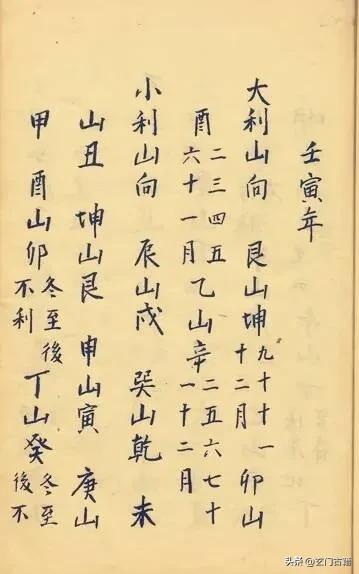 壬寅年
大利山向 艮山坤 九十十一十二月 卯山
酉 二三四五六十一月 乙山辛 二五六七十一十二月
小利山向 辰山戌 巽山乾 未
山丑 坤山艮 申山寅 庚山
甲 酉山卯 冬至後不利 丁山癸 冬至後不
头条 @玄门古籍